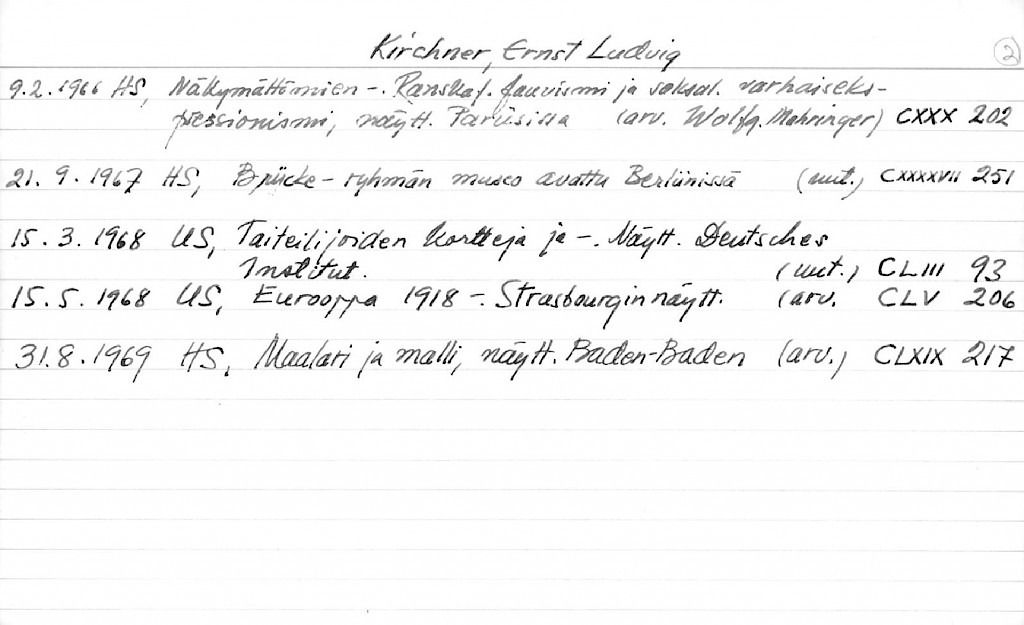 Kirchner, Ernst Ludvig 2
9.2.1966 HS, Näkymättömien -. Ranskal. fauvismi ja saksal. varhaiseks-
pressionismi, näytt. Pariisissa (arv. Wolfg. Mehringer) CXXX 202
21. 9. 1967 HS, Brücke-ryhmän museo avattu Berliinissä (uut.) CXXXXVII 251
15. 3. 1968 US, Taiteilijoiden kortteja ja -. Näytt. Deutsches
Institut. (uut.) CLIII 93
15. 5. 1968 US, Eurooppa 1918 -. Strasbourgin näytt. (arv. CLV 206
31.8.1969 HS, Maalari ja malli, näytt. Baden-Baden (arv.) CLXIX 217